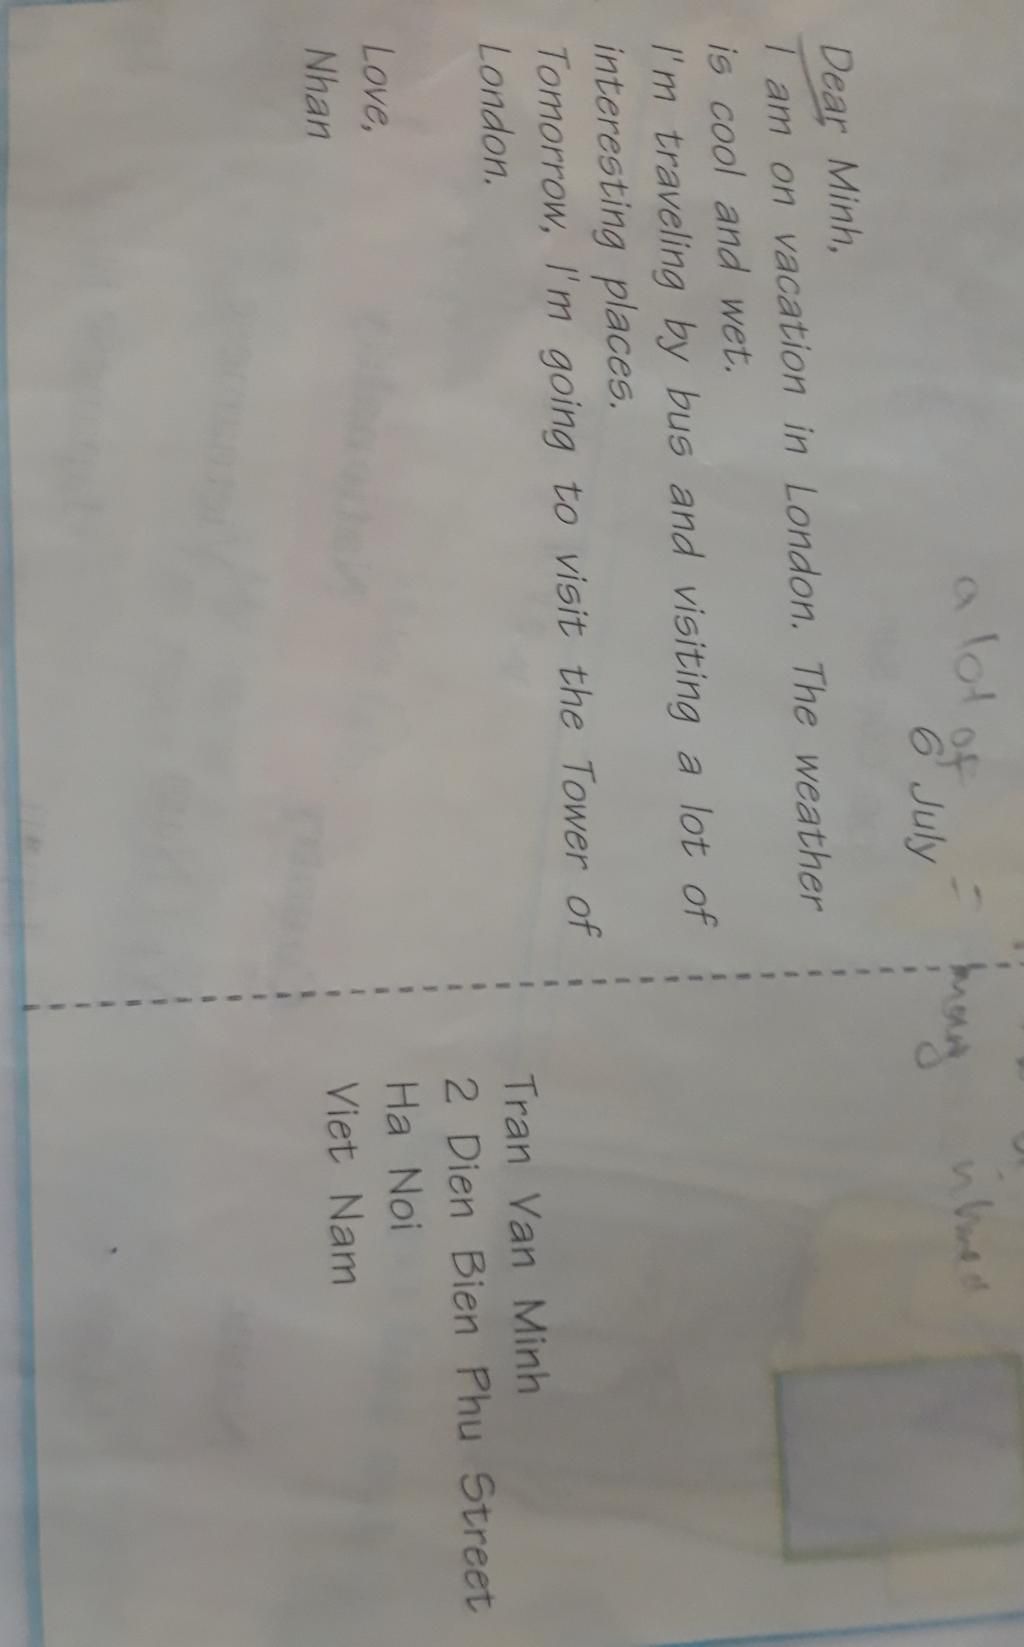 a lot of = many
6 July
Dear Minh,
I am on vacation in London. The weather
is cool and wet.
I'm traveling by bus and visiting a lot of
interesting places.
Tomorrow, I'm going to visit the Tower of
London.
Love,
Nhan
Tran Van Minh
2 Dien Bien Phu Street
Ha Noi
Viet Nam